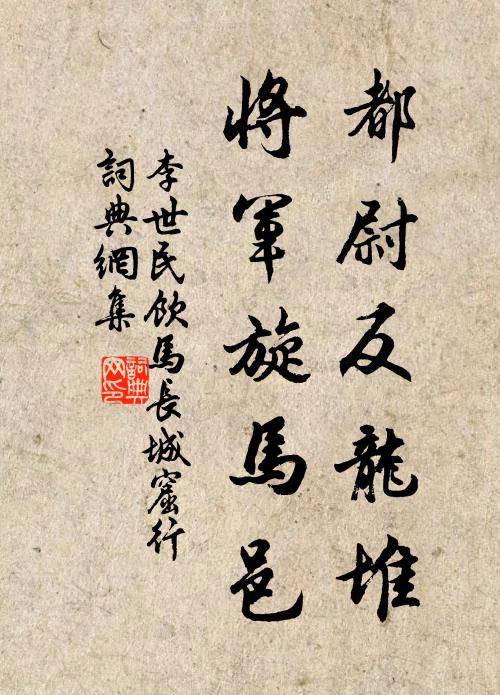 都尉反龍堆
將軍旋馬邑
李世民飲馬長城窟行
詞典網集
詞典
网印